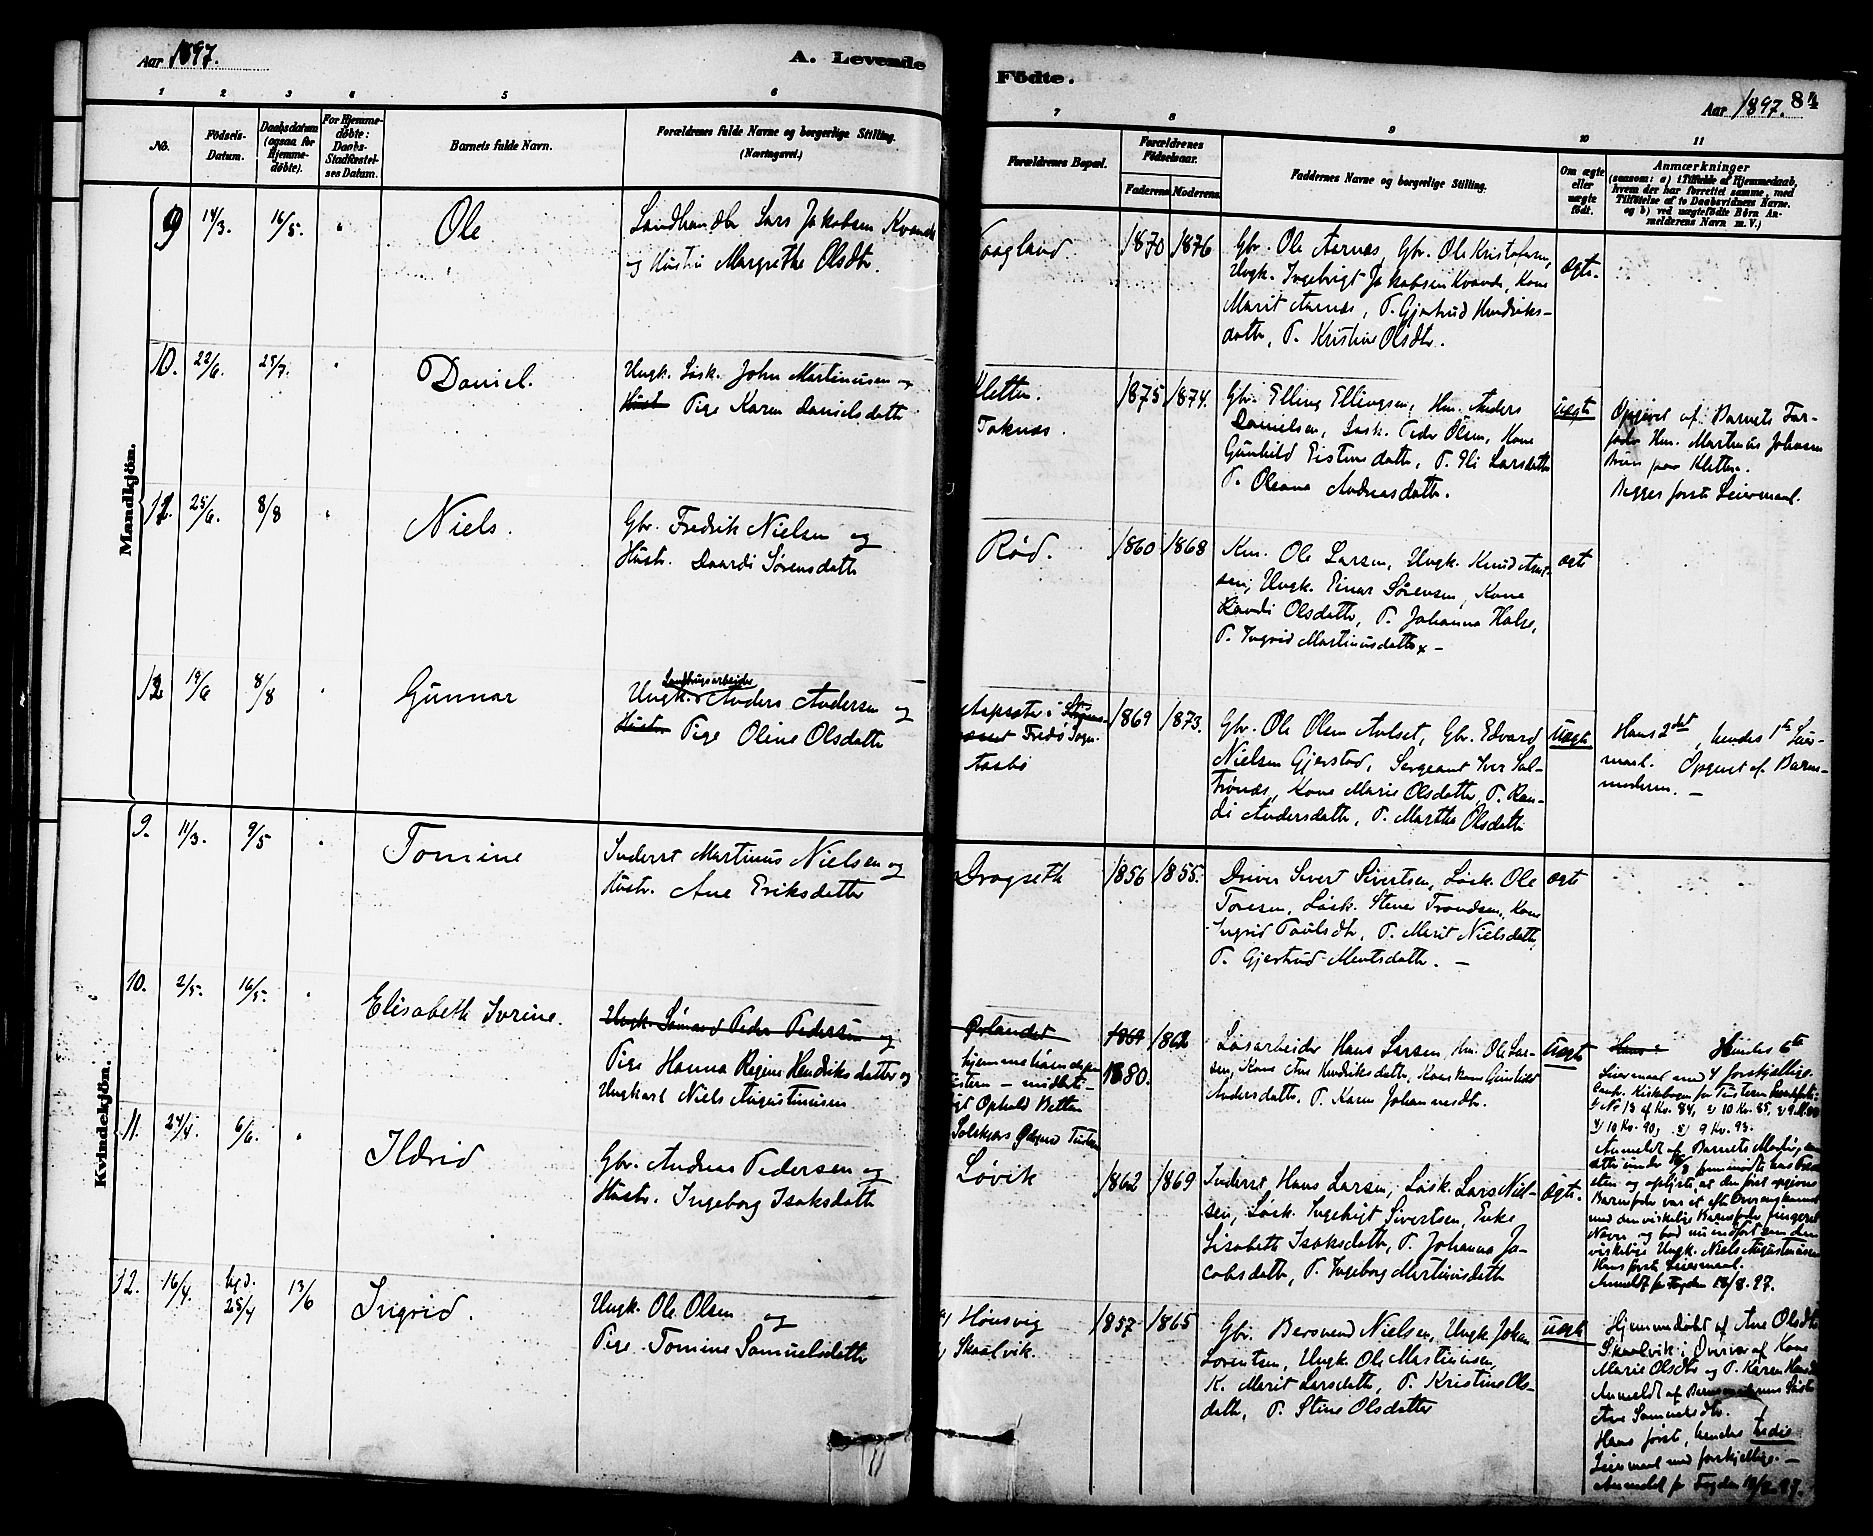 Aar 1897.
A. Levende
Födte.
Aar 1897.
84
1 2 3 4 5 6
7 8 9 10 11
No.
Födsels-
Datum.
Daabsdatum
(ogsaa for
Hjemme-
døbte).
For Hjemme-
døbte:
Daabs-
Stadfæstel-
ses Datum.
Barnets fulde Navn.
Forældrenes fulde Navne og borgerlige Stilling.
(Næringsvei.)
Forældrenes Bopæl.
Forældrenes
Födselsaar.
Faderens Moderens
Faddernes Navne og borgerlige Stilling.
Om ægte
eller
uægte
födt.
Anmærkninger
(saasom: a) i Tilfælde af Hjemmedaab,
hvem der har forrettet samme, med
Tilföielse af to Daabsvidners Navne.
og b) ved uægtefödte Börn An-
melderens Navn m. V.)
Mandkjön.
9 14/3. 16/5. Ole
Landhandler Lars Jakobsen Kvande
og Hustru Margrethe Olsdtr.
Vaagland. 1870 1876
Gbr. Ole Aarnæs, Gbr. Ole Kristofersen,
Ungk. Ingebrigt Jakobsen Kvande, Kone
Marit Aarnæs, P. Gjertrud Hendriks-
datter, P. Kristine Olsdtr.
ægte.
10. 22/6. 25/7. Daniel.
Ungk. Løsk. John Martinusen og
Hust. Pige Karen Danielsdatter
Kletten.
Taknæs.
1875 1874.
Gbr. Elling Ellingsen, Hm. Anders
Danielsen, Løsk. Peder Olsen, Kone
Gunhild Eistensdatter, P. Eli Larsdatter
P. Oleana Andreasdatter.
uægte
Opgivet af Barnets Far-
fader Hm. Martinus Johnsen
Brun paa Kletten.
Begges første Leiermaal.
11. 25/6. 8/8 Niels.
Gbr. Fredrik Nielsen og
Hustr. Daardi Sørensdatter
Rød. 1860 1868
Km. Ole Larsen, Ungk. Knud Arnt-
sen, Ungk. Einar Sørensen, Kone
Randi Olsdatter, P. Johanna Halse,
P. Ingrid Martinusdatter. -
ægte
12 19/6 8/8 Gunnar
Landbrugsarbeider
Ungk. Anders Andersen og
Hustr. Pige Oline Olsdatter
Aspsæter i
Fredø Sogn.
Aasbø
1869 1873.
Gbr. Ole Olsen Aalset, Gbr. Edvard
Nielsen Gjerstad, Sergeant Iver Sal-
trønæs, Kone Marie Olsdatter, P. Ran-
di Andersdatter, P. Marthe Olsdatter
uægte
Hans 2det, hendes 1ste Leier-
maal. Opgivet af Barne-
moderen. -
Kvindekjön.
9. 11/3. 9/5 Tomine
Inderst Martinus Nielsen og
Hustr. Ane Eriksdatter
Dragseth 1856 1855.
Driver Sivert Sivertsen, Løsk. Ole
Toresen, Løsk. Stener Trondsen, Kone
Ingrid Paulsdtr, P. Marit Nielsdatter,
P. Gjertrud Mentsdatter. -
ægte
10. 2/5. 16/5. Elisabeth Ivrine.
Ungk. Sømand Peder Pedersen og
Pige Hanna Regine Hendriksdatter og
Ungkarl Niels Augustinusen
Ørlandet
hjemmehørende paa
Tustern - midlerti-
digt Ophold Betten
Solskjærs Tustern
1869 1862
1880.
Løsarbeider Hans Larsen, Hm. Ole Lar-
sen, Kone Ane Hendriksdatter, Kone Gunhild
Andersdatter, P. Karen Johannesdtr.
uægte
Hans: Hendes 6te
Leiermaal med 4 forskjellige.
Confr. Kirkebogen for Tustern
1) No 13 af Kv. 84, 2) 10 Kv. 85,
4) 10 Kv. 90, 5) 9 Kv. 93.
Anmeldt af Barnets Moder,
Barnefader var et efter Overenskomst
med den virkelige Barnefader fingeret
Navn og bød nu indført som den
virkelige Ungk. Niels Augustinusen
Hans første Leiermaal.
Anmeldt for Fogden 18/8. 97.
11. 24/4. 6/6. Ildrid
Gbr. Andreas Pedersen og
Hustr. Ingeborg Isaksdatter
Løvik 1862 1869
Inderst Hans Larsen, Løsk. Lars Niel-
sen, Løsk. Ingebrigt Sivertsen, Enke
Lisabeth Isaksdatter, P. Johanna Ja-
cobsdatter, P. Ingeborg Martinusdatter
ægte.
12. 16/4. hjd. 25/4 13/6 Ingrid.
Ungk. Ole Olsen og
Pige Tomine Samuelsdatter
Honsvig
Skaalvik.
1857 1865
Gbr. Bersvend Nielsen, Ungk. Johan
Lorentsen, Ungk. Ole Martinusen,
K. Marit Larsdatter, P. Kristine Ols-
datter, P. Stine Olsdatter
uægte
Hjemmedøbt af Ane Olsdtr
Skaalvik i Overvær af Kone
Marie Olsdtr og P. Karen Hansdtr
Anmeldt af Barnemoderens Søster
Ane Samuelsdtr.
Hans første, hendes tredie
Leiermaal med forskjellige. -
Anmeldt for Fogden 97.